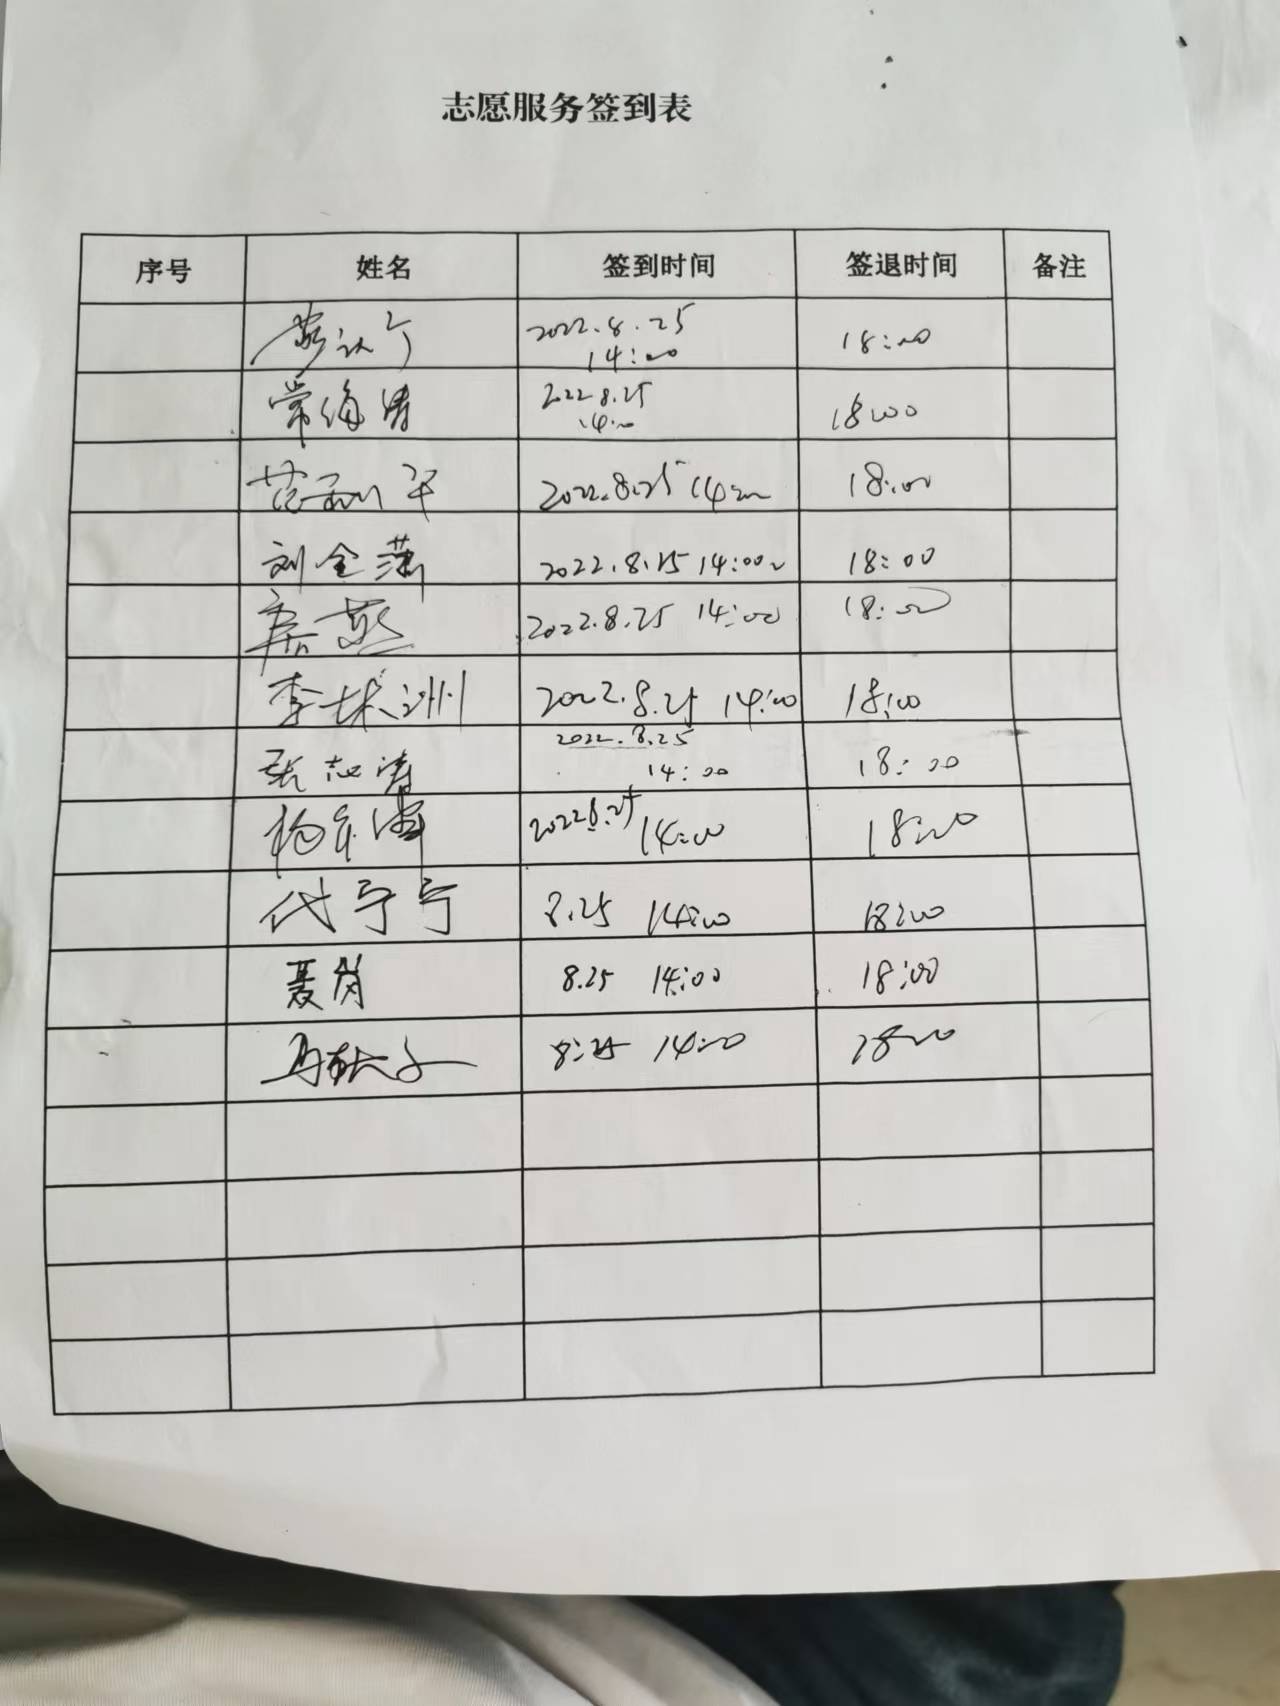 志愿服务签到表
序号 姓名 签到时间 签退时间 备注
2022.8.25
14:00 18:00
常海涛 2022.8.25
14:00 18:00
2022.8.25 14:00 18:00
刘全萍 2022.8.25 14:00 18:00
燕 2022.8.25 14:00 18:00
李 洲 2022.8.25 14:00 18:00
张志涛 2022.8.25
14:00 18:00
杨 2022.8.25 14:00 18:00
代宁宁 8.25 14:00 18:00
聂岗 8.25 14:00 18:00
8:25 14:00 18:00